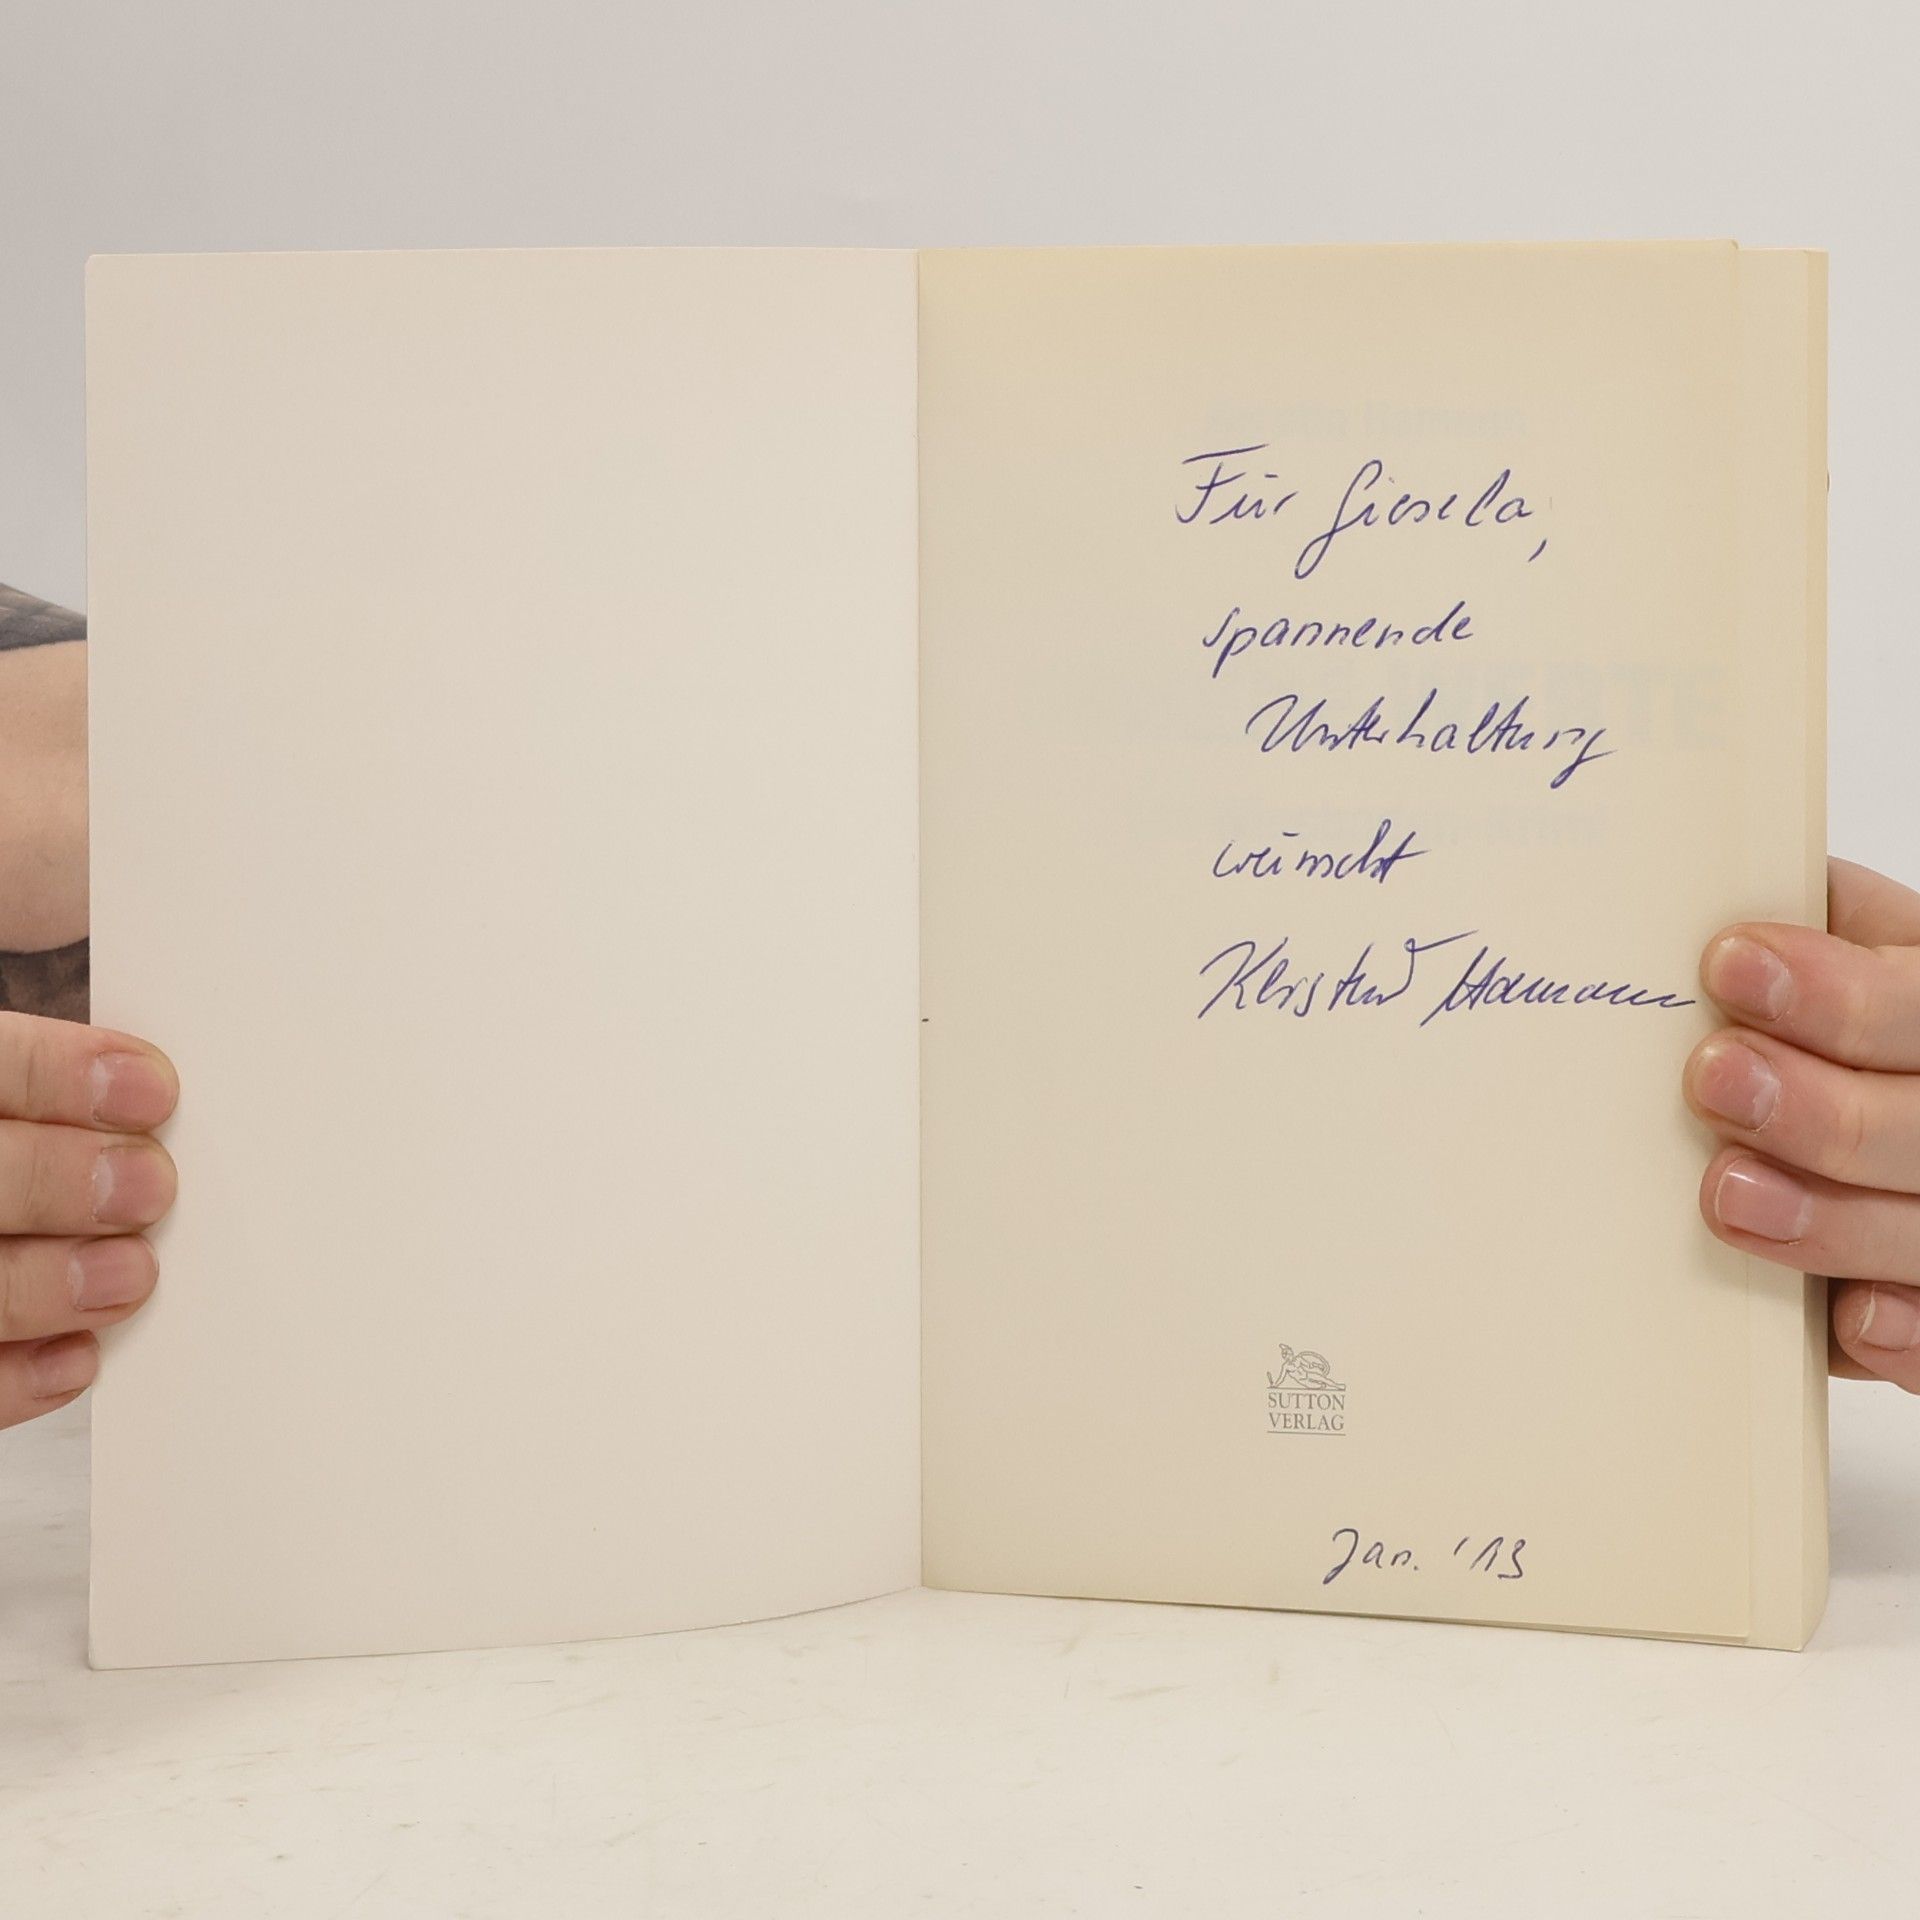 Für Giesela,
spannende
Unterhaltung
wünscht
Kerstin Hamann
SUTTON
VERLAG
Jan. '13